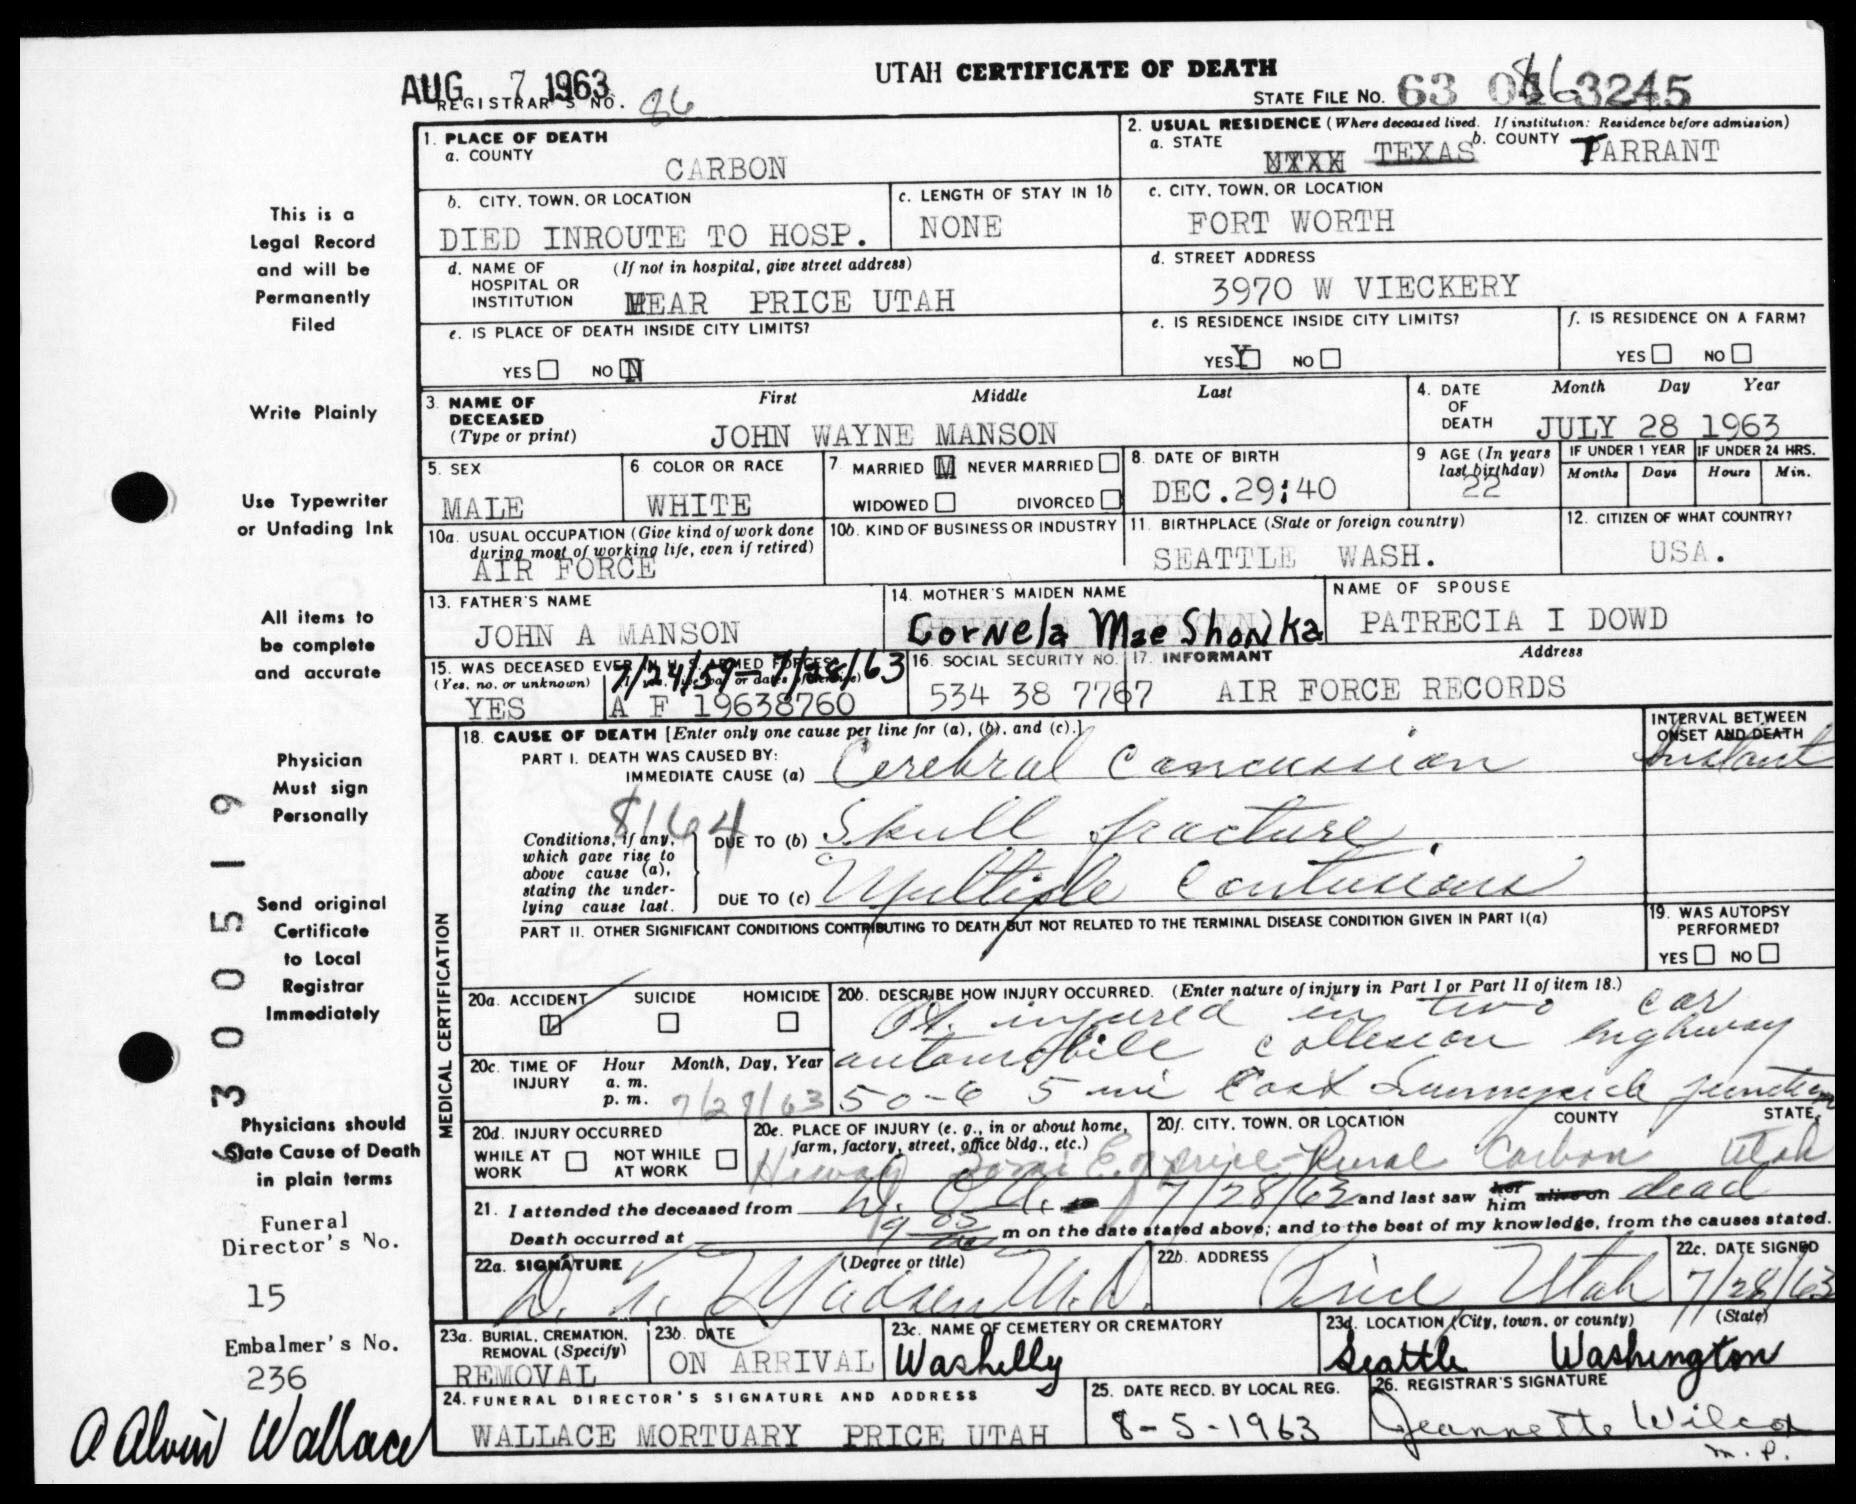 AUG 7 1963
UTAH CERTIFICATE OF DEATH
REGISTRAR'S NO. 86
STATE FILE NO. 63 3245
1. PLACE OF DEATH
a. COUNTY
CARBON
2. USUAL RESIDENCE (Where deceased lived. If institution: Residence before admission)
a. STATE TEXAS b. COUNTY TARRANT
b. CITY, TOWN, OR LOCATION
DIED INROUTE TO HOSP.
c. LENGTH OF STAY IN 1b
NONE
c. CITY, TOWN, OR LOCATION
FORT WORTH
d. NAME OF HOSPITAL OR INSTITUTION (If not in hospital, give street address)
NEAR PRICE UTAH
d. STREET ADDRESS
3970 W VIECKERY
e. IS PLACE OF DEATH INSIDE CITY LIMITS?
YES NO N
e. IS RESIDENCE INSIDE CITY LIMITS?
YES Y NO
f. IS RESIDENCE ON A FARM?
YES NO
3. NAME OF DECEASED (Type or print)
First Middle Last
JOHN WAYNE MANSON
4. DATE OF DEATH
Month Day Year
JULY 28 1963
5. SEX
MALE
6 COLOR OR RACE
WHITE
7 MARRIED M NEVER MARRIED
WIDOWED DIVORCED
8. DATE OF BIRTH
DEC.29;40
9 AGE (In years last birthday)
22
IF UNDER 1 YEAR
Months Days
IF UNDER 24 HRS.
Hours Min.
10a. USUAL OCCUPATION (Give kind of work done during most of working life, even if retired)
AIR FORCE
10b. KIND OF BUSINESS OR INDUSTRY
11. BIRTHPLACE (State or foreign country)
SEATTLE WASH.
12. CITIZEN OF WHAT COUNTRY?
USA.
13. FATHER'S NAME
JOHN A MANSON
14. MOTHER'S MAIDEN NAME
Cornela Mae Shonka
NAME OF SPOUSE
PATRECIA I DOWD
15. WAS DECEASED EVER IN U. S. ARMED FORCES?
(Yes, no. or unknown) (If yes, give war or dates of service)
YES
7/24/59-7/28/63
A F 19638760
16. SOCIAL SECURITY NO.
534 38 7767
17. INFORMANT Address
AIR FORCE RECORDS
MEDICAL CERTIFICATION
18. CAUSE OF DEATH [Enter only one cause per line for (a), (b), and (c).]
INTERVAL BETWEEN ONSET AND DEATH
PART I. DEATH WAS CAUSED BY:
IMMEDIATE CAUSE (a) Cerebral Concussion Instant
8164
Conditions, if any, which gave rise to above cause (a), stating the underlying cause last.
DUE TO (b) Skull fracture
DUE TO (c) Multiple Contusions
PART II. OTHER SIGNIFICANT CONDITIONS CONTRIBUTING TO DEATH BUT NOT RELATED TO THE TERMINAL DISEASE CONDITION GIVEN IN PART I(a)
19. WAS AUTOPSY PERFORMED?
YES NO
20a. ACCIDENT SUICIDE HOMICIDE
20b. DESCRIBE HOW INJURY OCCURRED. (Enter nature of injury in Part I or Part II of item 18.)
Pt. injured in two car
automobile collesion highway
50-6 5 mi East Sunnyside junction
20c. TIME OF INJURY
Hour a. m. p. m. Month, Day, Year
7/28/63
20d. INJURY OCCURRED
WHILE AT WORK NOT WHILE AT WORK
20e. PLACE OF INJURY (e. g., in or about home, farm, factory, street, office bldg., etc.)
20f. CITY, TOWN, OR LOCATION COUNTY STATE
price-Rural Carbon Utah
21. I attended the deceased from D. O. A. 7/28/63 and last saw her him alive on dead
Death occurred at 9 05 m on the date stated above; and to the best of my knowledge, from the causes stated.
22a. SIGNATURE (Degree or title)
Madsen M.D.
22b. ADDRESS
Price Utah
22c. DATE SIGNED
7/28/63
23a. BURIAL, CREMATION, REMOVAL (Specify)
REMOVAL
23b. DATE
ON ARRIVAL
23c. NAME OF CEMETERY OR CREMATORY
Washelly
23d. LOCATION (City, town, or county) (State)
Seattle Washington
24. FUNERAL DIRECTOR'S SIGNATURE AND ADDRESS
WALLACE MORTUARY PRICE UTAH
25. DATE RECD. BY LOCAL REG.
8-5-1963
26. REGISTRAR'S SIGNATURE
Jeannette Wilcox
M.P.
This is a
Legal Record
and will be
Permanently
Filed
Write Plainly
Use Typewriter
or Unfading Ink
All items to
be complete
and accurate
Physician
Must sign
Personally
Send original
Certificate
to Local
Registrar
Immediately
Physicians should
State Cause of Death
in plain terms
6300519
Funeral
Director's No.
15
Embalmer's No.
236
A Alvin Wallace